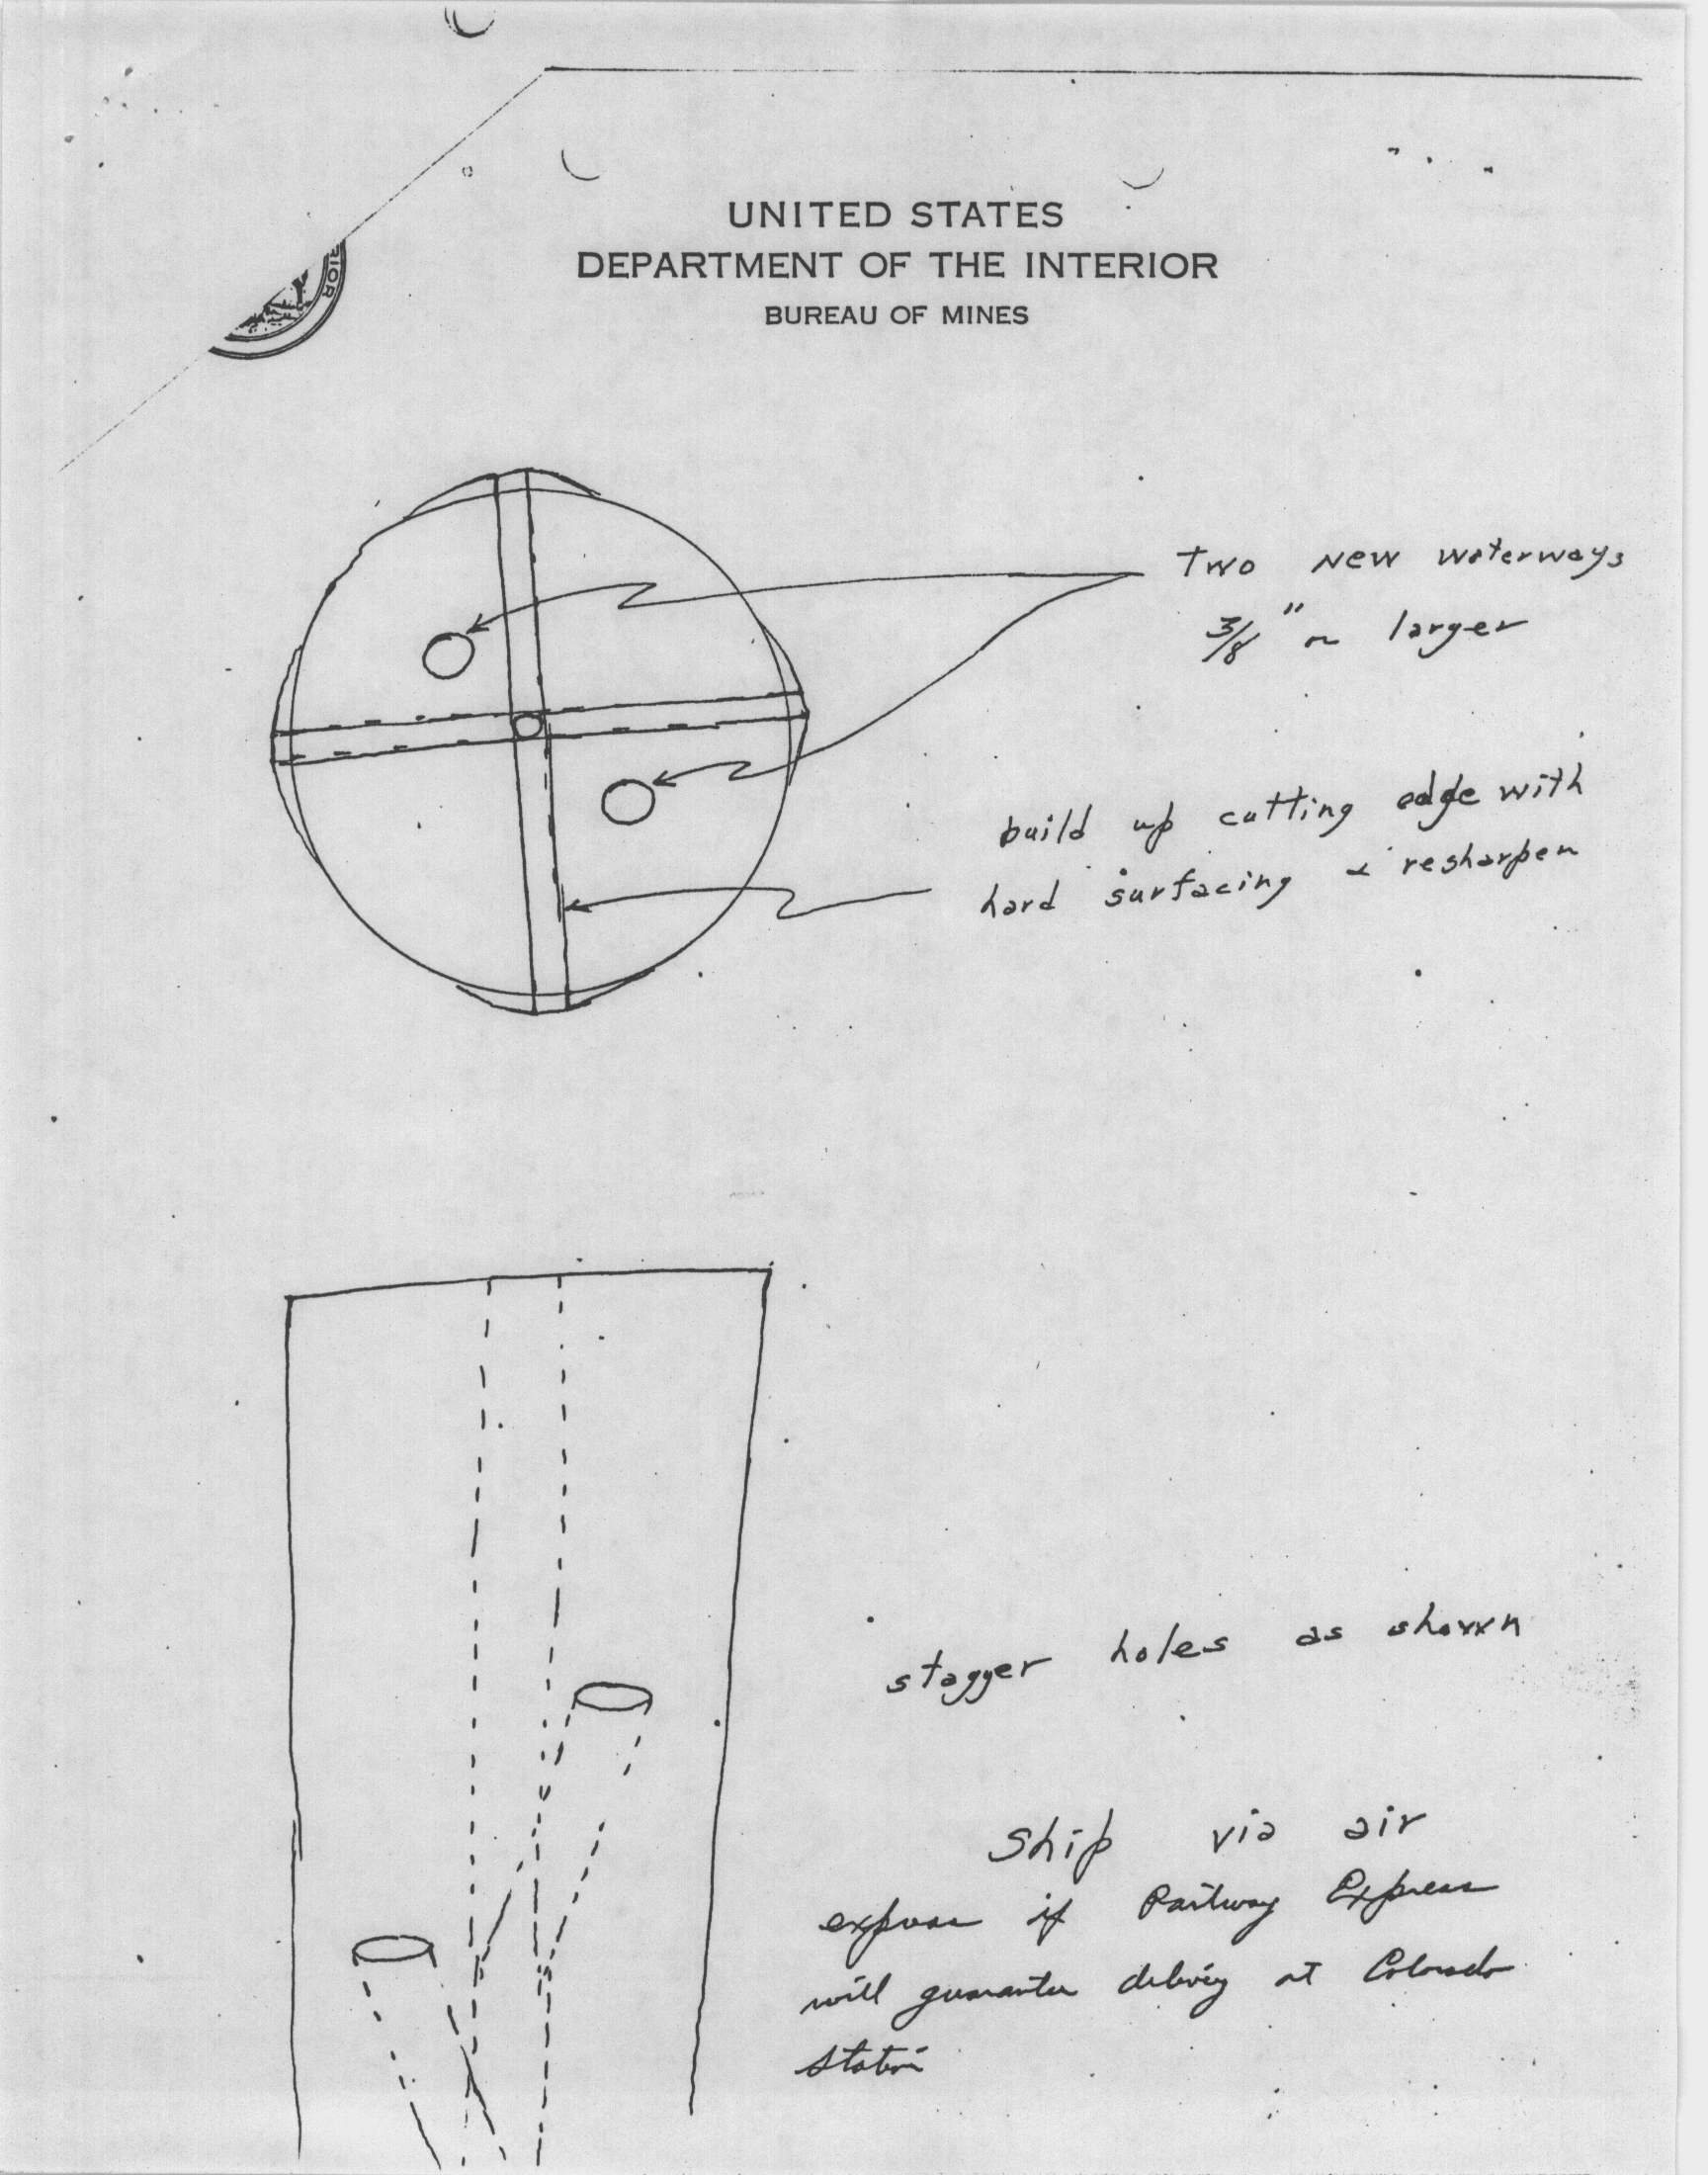 RIOR
UNITED STATES
DEPARTMENT OF THE INTERIOR
BUREAU OF MINES
Two New waterways
3/8" or larger
build up cutting edge with
hard surfacing & resharpen
stagger holes as shown
Ship via air
express if Railway Express
will guarantee delivery at Colorado
Station